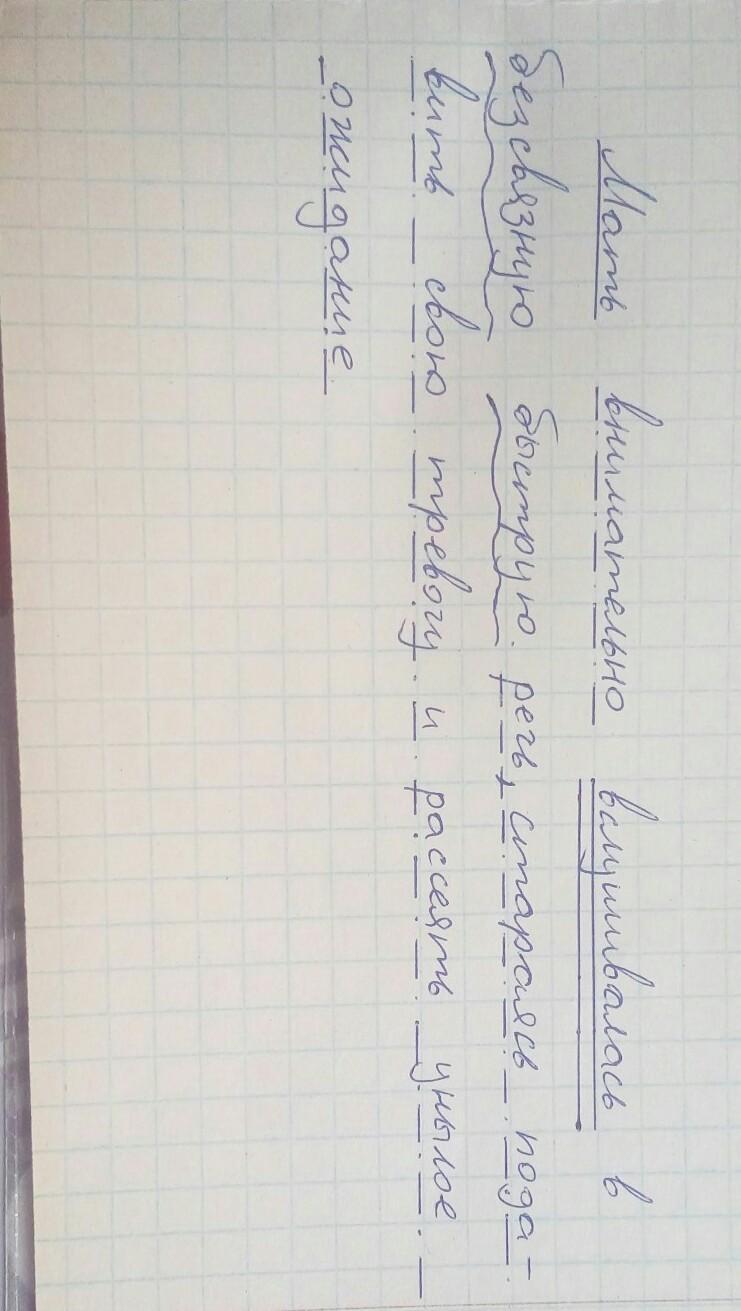 Мать внимательно вслушивалась в
безсвязную быструю речь, стараясь пода-
вить свою тревогу и рассеять унылое
ожидание